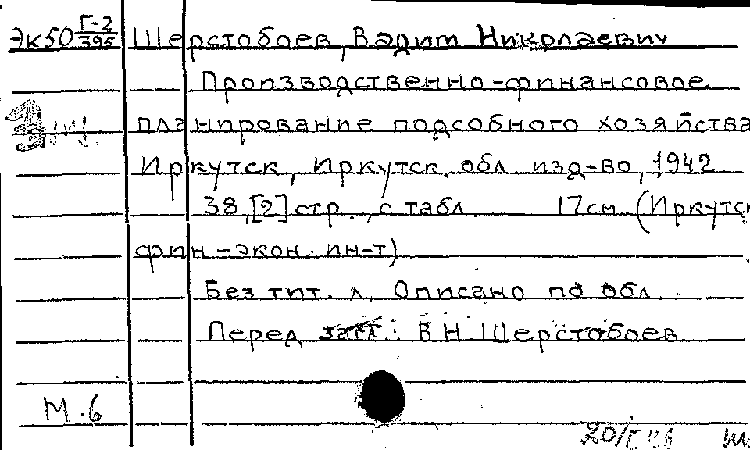 Эк50 Г-2/395 Шерстобоев, Вадим Николаевич
Производственно-финансовое
планирование подсобного хозяйства
Иркутск, Иркутск. обл. изд-во, 1942
38, [2] стр., с табл. 17см. (Иркутск.
фин-экон. ин-т)
Без тит. л. Описано по обл.
Перед загл.: В.Н. Шерстобоев
М.б